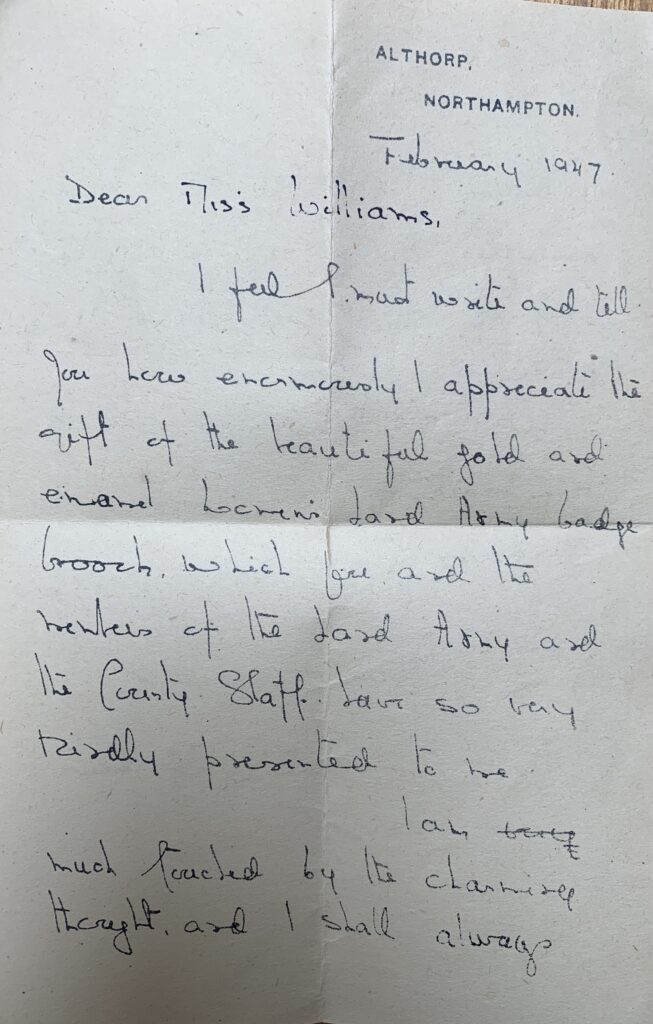 ALTHORP,
NORTHAMPTON.
February 1947.
Dear Miss Williams,
I feel I must write and tell
you how enormously I appreciate the
gift of the beautiful gold and
enamel Women's Land Army badge
brooch, which you and the
members of the Land Army and
the County Staff have so very
kindly presented to me
I am
much touched by the charming
thought, and I shall always